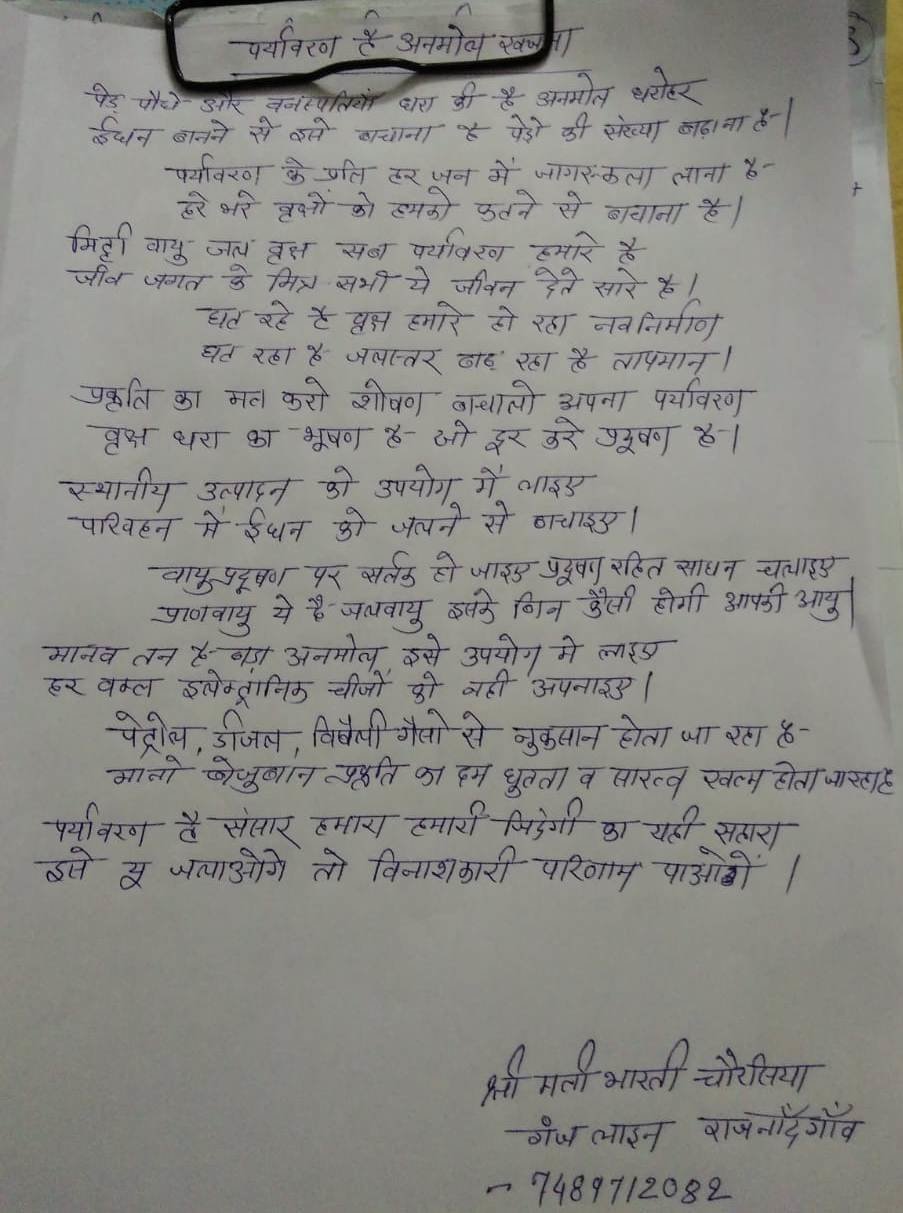 पर्यावरण है अनमोल खजाना
पेड़ पौधे और वनस्पतियां धरा की है अनमोल धरोहर
ईंधन बनने से इसे बचाना है पेड़ो की संख्या बढ़ाना है।
पर्यावरण के प्रति हर जन में जागरूकता लाना है
हरे भरे वृक्षों को हमको कटने से बचाना है।
मिट्टी वायु जल वृक्ष सब पर्यावरण हमारे है
जीव जगत के मित्र सभी ये जीवन देते सारे है।
घट रहे है वृक्ष हमारे हो रहा नवनिर्माण
घट रहा है जलस्तर बढ़ रहा है तापमान।
प्रकृति का मत करो शोषण बचालो अपना पर्यावरण
वृक्ष धरा का भूषण है जो दूर करे प्रदूषण है।
स्थानीय उत्पादन को उपयोग में लाइए
परिवहन में ईंधन को जलने से बचाइए।
वायु प्रदूषण पर सर्तक हो जाइए प्रदूषण रहित साधन चलाइए
प्राणवायु ये है जलवायु इसके बिन कैसी होगी आपकी आयु।
मानव तन है बड़ा अनमोल इसे उपयोग मे लाइए
हर वक्त इलेक्ट्रानिक चीजों को नही अपनाइए।
पेट्रोल, डीजल, विषैली गैसो से नुकसान होता जा रहा है
मानो बेजुबान प्रकृति का दम घुटता व सारत्व खत्म होता जा रहा है
पर्यावरण है संसार हमारा हमारी जिदंगी का यही सहारा
इसे यू जलाओगे तो विनाशकारी परिणाम पाओगें।
श्री मती भारती चौरसिया
गंज लाइन राजनाँदगाँव
- 7489712082